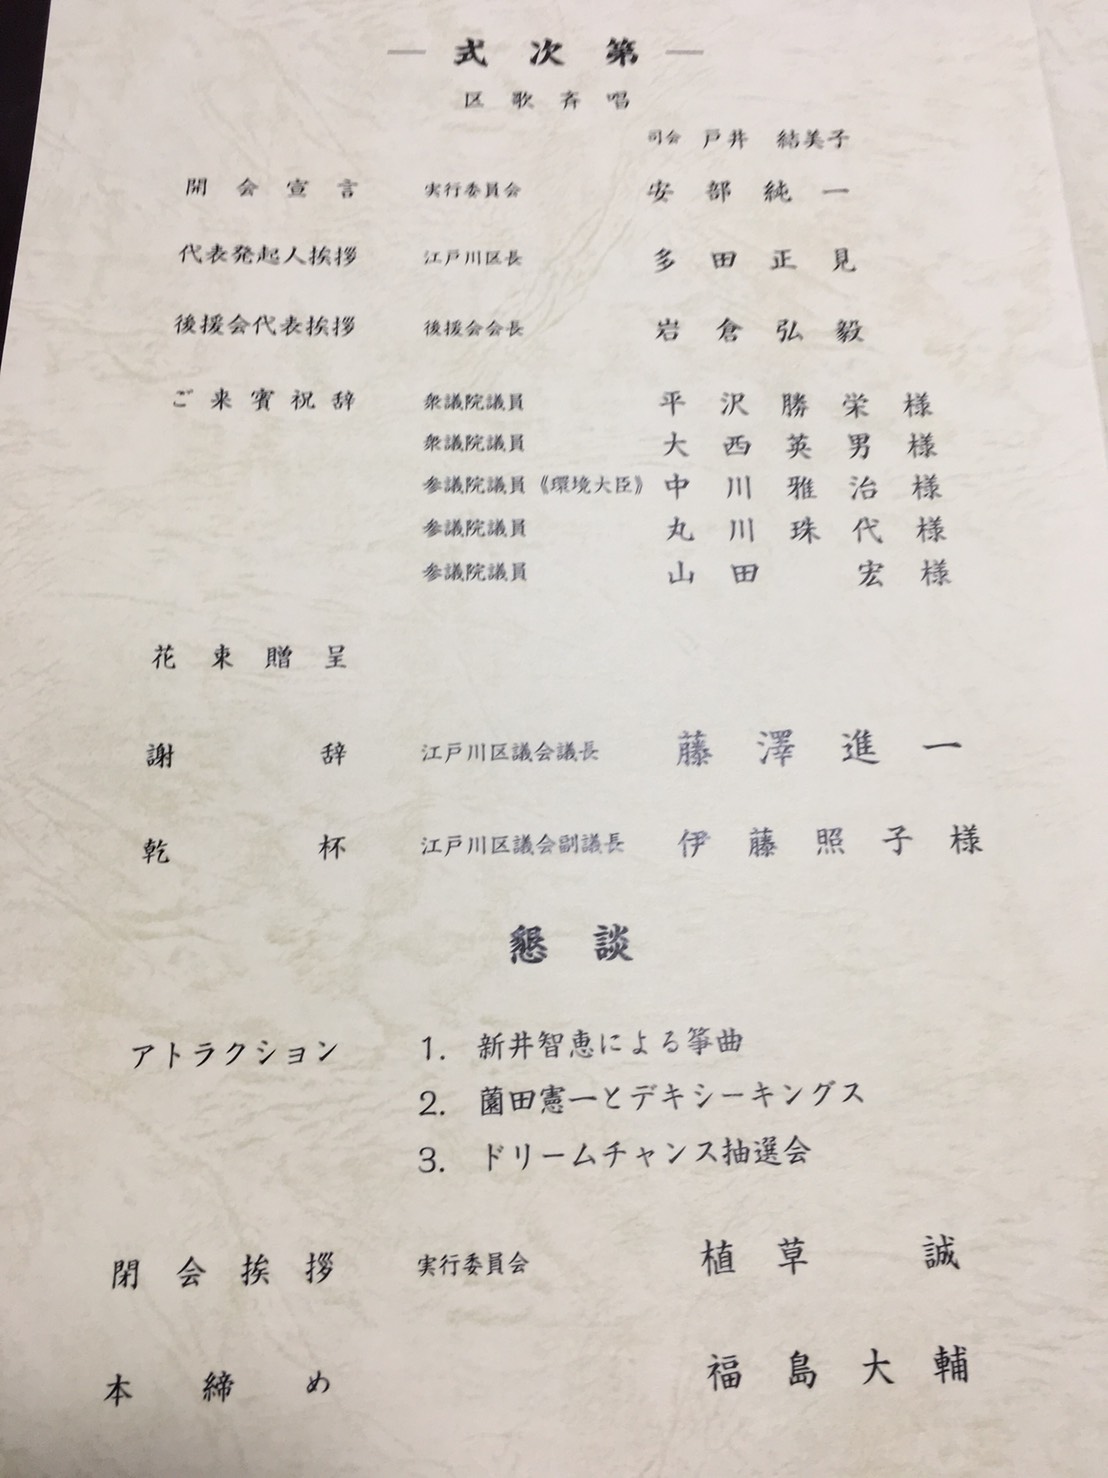 — 式次第 —
区歌斉唱
司会 戸井 結美子
開会宣言 実行委員会 安部純一
代表発起人挨拶 江戸川区長 多田正見
後援会代表挨拶 後援会会長 岩倉弘毅
ご来賓祝辞 衆議院議員 平沢勝栄様
衆議院議員 大西英男様
参議院議員《環境大臣》 中川雅治様
参議院議員 丸川珠代様
参議院議員 山田 宏様
花束贈呈
謝辞 江戸川区議会議長 藤澤進一
乾杯 江戸川区議会副議長 伊藤照子様
懇談
アトラクション 1. 新井智恵による箏曲
2. 薗田憲一とデキシーキングス
3. ドリームチャンス抽選会
閉会挨拶 実行委員会 植草 誠
本締め 福島大輔